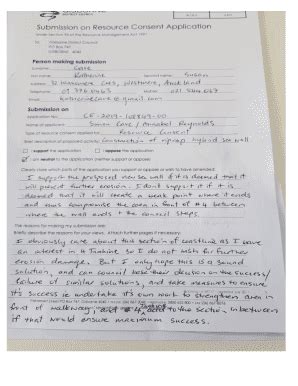 Submission on Resource Consent Application
Under Section 96 of the Resource Management Act 1991
To:
Gisborne District Council
PO Box 747
Gisborne 4040
Person making submission
Surname: Cave
First name: Katherine Second name: Susan
Address: Auckland
Telephone: Mobile:
Email:
Submission on
Application No:
Name of applicant: Simon Cave / Annabel Reynolds
Type of resource consent applied for: Resource Consent
Brief description of proposed activity: Construction of riprap hybrid sea wall
I support the application I oppose the application
I am neutral to the application (neither support or oppose)
Clearly state which parts of the application you support or oppose or wish to have amended.
I support the proposed sea wall if it is deemed that it
will prevent further erosion. I don't support it if it is
deemed that it will create a weak point where it ends
and thus compromise the area in front of #4 between
where the wall ends + the council steps.
The reasons for making my submission are:
Briefly describe the reasons for your views. Attach further pages if necessary.
I obviously care about this section of coastline as I have
an interest in 4 Tuahine. So I do not wish for further
erosion damage. But I only hope this is a sound
solution, and can council base their decision on the success/
failure of similar solutions, and take measures to ensure
it's success ie undertake it's own work to strengthen area in
front of walkway; and the section in between
if that would ensure maximum success.